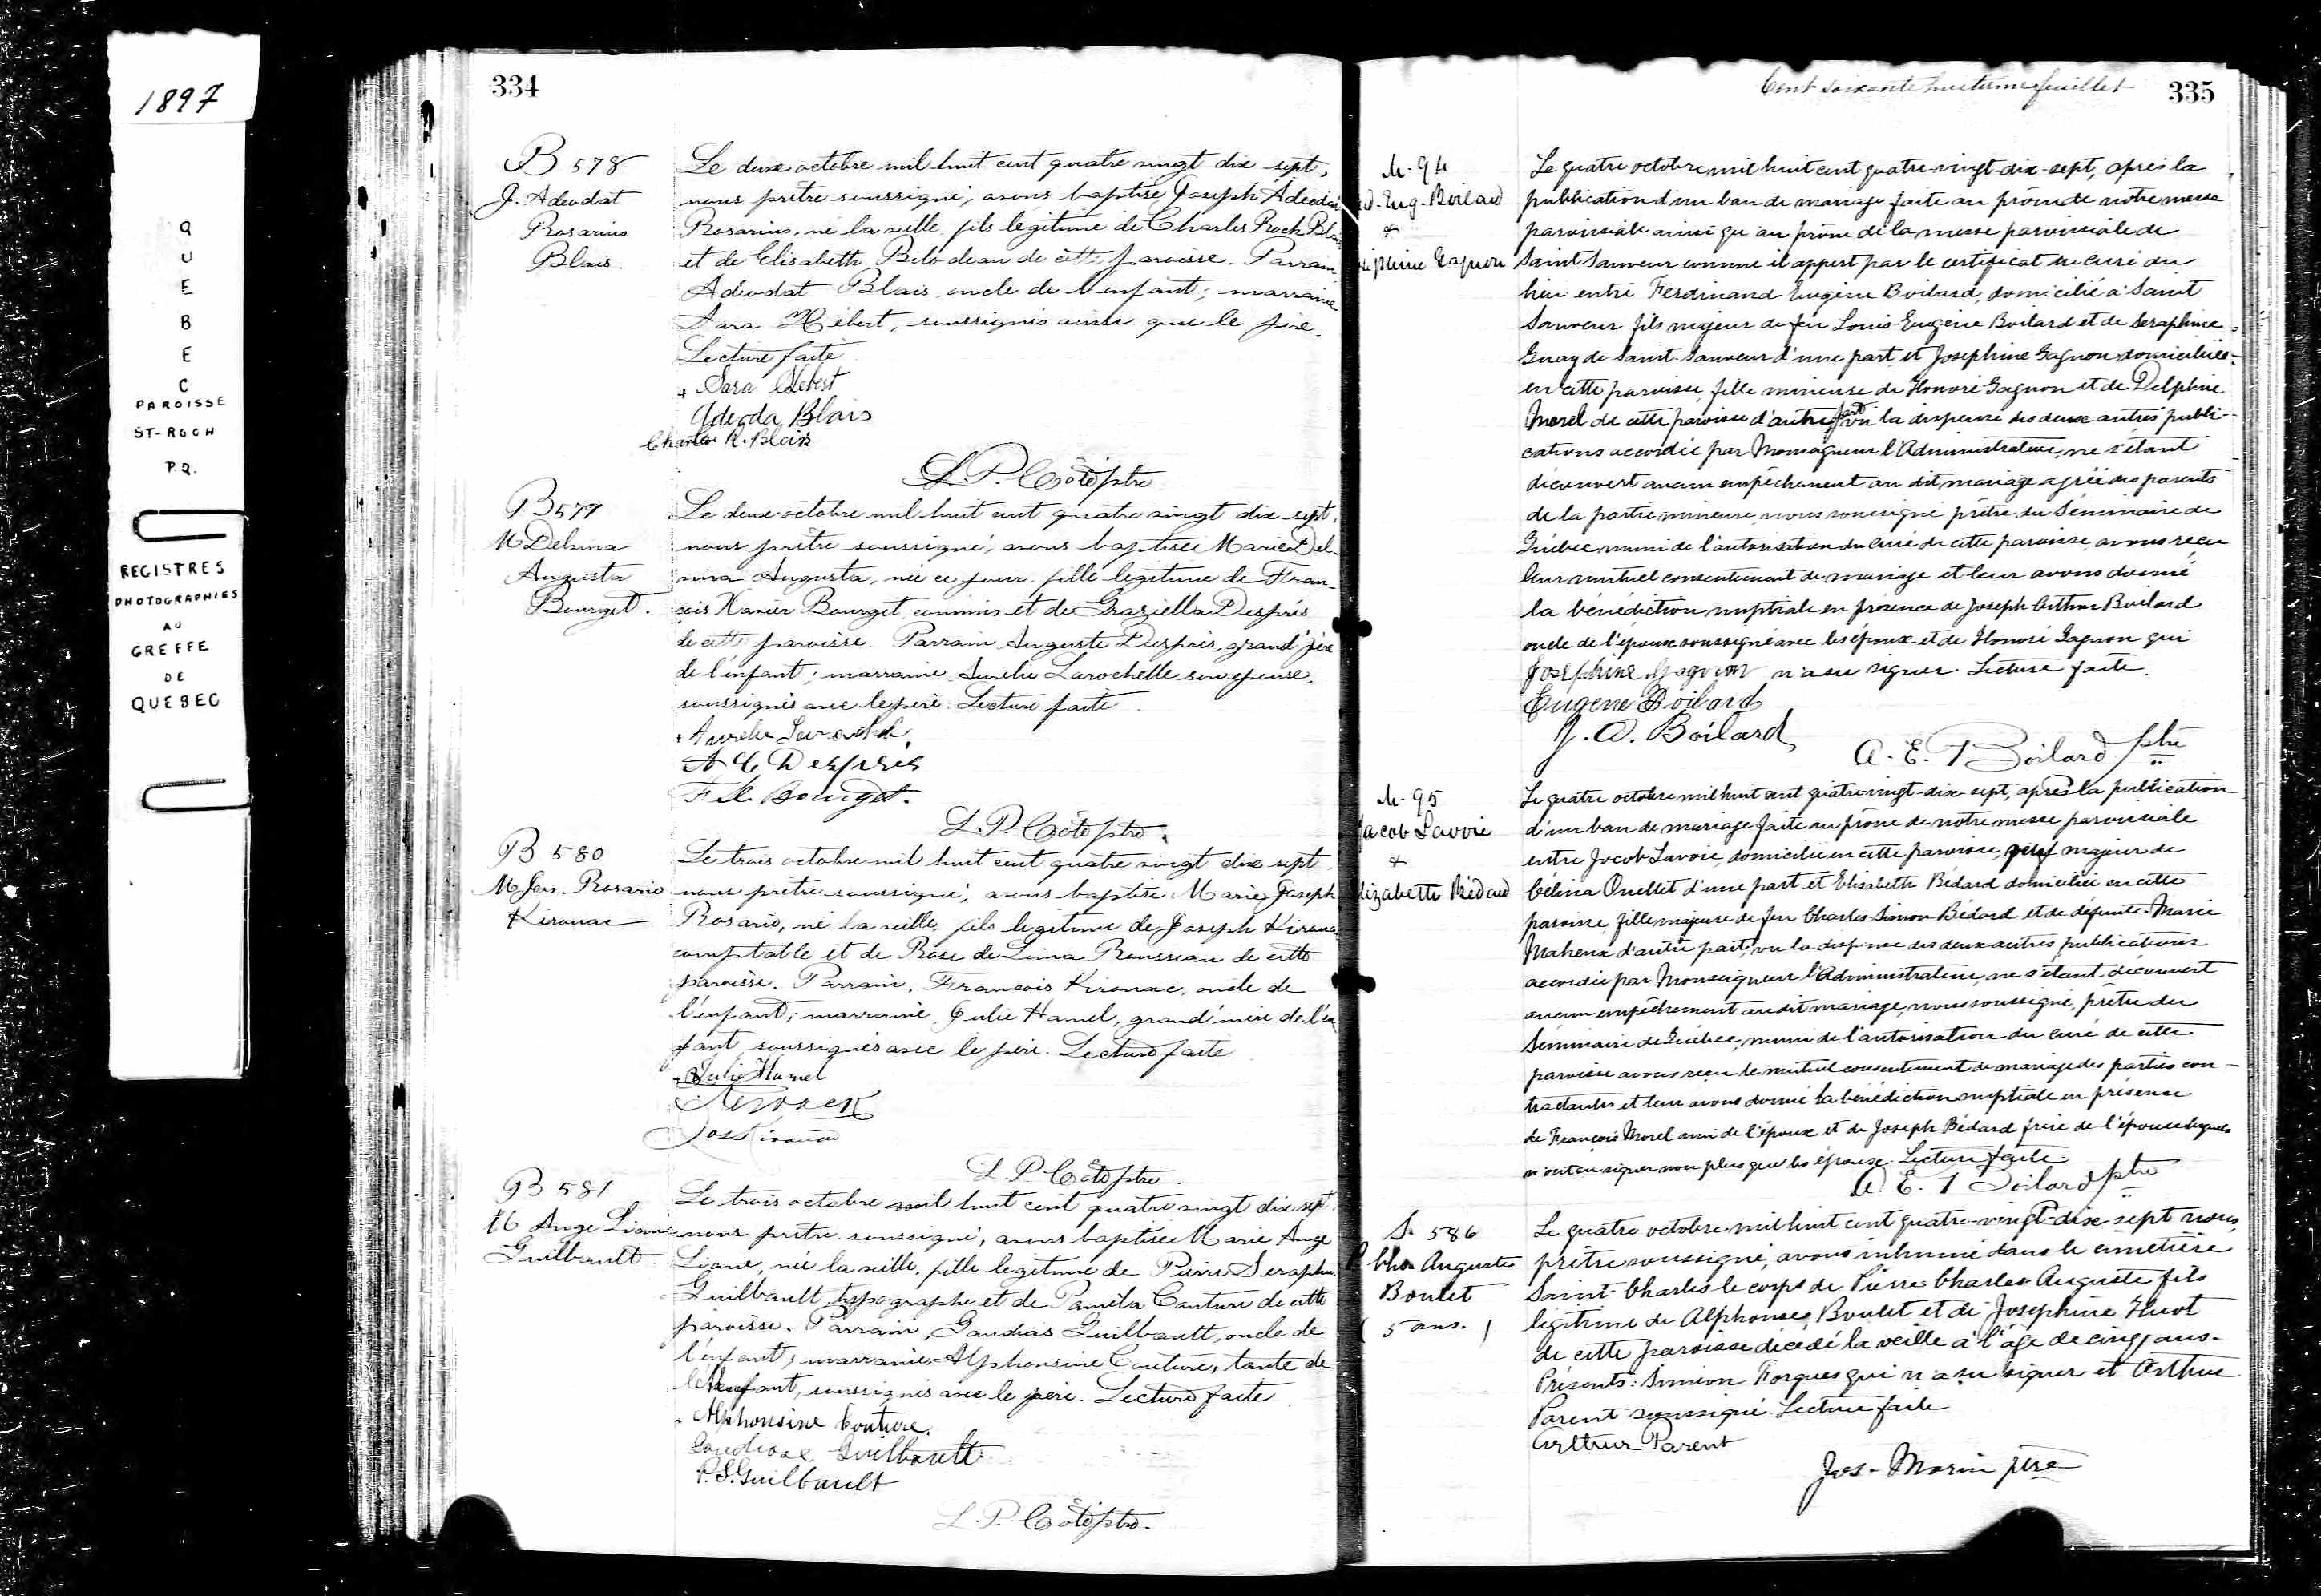 1897
QUEBEC
PAROISSE
ST-ROCH
P.Q.
REGISTRES
PHOTOGRAPHIES
AU
GREFFE
DE
QUEBEC
334
B 578
J. Adeodat
Rosarius
Blais
Le deux octobre mil huit cent quatre vingt dix sept,
nous prêtre soussigné, avons baptisé Joseph Adéodat
Rosarius, né la veille, fils légitime de Charles Roch Blais
et de Elisabeth Bilodeau de cette paroisse. Parrain
Adéodat Blais oncle de l'enfant; marraine
Sara Hébert, soussignés ainsi que le père.
Lecture faite
+ Sara Hebert
Adeoda Blais
Charles R. Blais
L. P. Côté ptre
B 579
M Delvina
Augusta
Bourget.
Le deux octobre mil huit cent quatre vingt dix sept,
nous prêtre soussigné, avons baptisée Marie Del-
vina Augusta, née ce jour, fille légitime de Fran-
çois Xavier Bourget commis et de Graziella Després
de cette paroisse. Parrain Auguste Després, grand'père
de l'enfant; marraine Aurelie Larochelle son épouse,
soussignés avec le père. Lecture faite
+ Aurelie Larochelle
Després
F. X. Bourget.
L. P. Côté ptre.
B 580
M Jos. Rosario
Kirouac
Le trois octobre mil huit cent quatre vingt dix sept
nous prêtre soussigné, avons baptisé Marie Joseph
Rosario, né la veille, fils légitime de Joseph Kirouac
comptable et de Rose de Lima Rousseau de cette
paroisse. Parrain, François Kirouac, oncle de
l'enfant; marraine Julie Hamel, grand'mère de l'en
fant soussignés avec le père. Lecture faite
+ Julie Hamel
Jos Kirouac
L. P. Côté ptre.
B 581
M Ange Liane
Guilbault.
Le trois octobre mil huit cent quatre vingt dix sept,
nous prêtre soussigné, avons baptisée Marie Ange
Liane, née la veille, fille légitime de Pierre Seraphin
Guilbault typographe et de Paméla Couture de cette
paroisse. Parrain, Gaudias Guilbault, oncle de
l'enfant; marraine Alphonsine Couture, tante de
l'enfant, soussignés avec le père. Lecture faite
Alphonsine Couture.
Gaudiose Guilbault
P. S. Guilbault
L. P. Côté ptre.
Cent soixante huitième feuillet 335
M. 94
Eug. Boilard
+
Josephine Gagnon
Le quatre octobre mil huit cent quatre-vingt-dix-sept, après la
publication d'un ban de mariage faite au prône de notre messe
paroissiale ainsi qu'au prône de la messe paroissiale de
Saint Sauveur comme il appert par le certificat du curé du
lieu entre Ferdinand Eugène Boilard, domicilié à Saint
Sauveur fils majeur de feu Louis-Eugène Boilard et de Seraphine
Guay de Saint-Sauveur d'une part et Josephine Gagnon domiciliée
en cette paroisse, fille mineure de Honoré Gagnon et de Delphine
Morel de cette paroisse d'autre part vu la dispense des deux autres publi-
cations accordée par Monseigneur l'Administrateur, ne s'étant
découvert aucun empêchement au dit mariage agréé des parents
de la partie mineure, nous soussigné prêtre du Séminaire de
Québec muni de l'autorisation du curé de cette paroisse avons reçu
leur mutuel consentement de mariage et leur avons donné
la bénédiction nuptiale en présence de Joseph Arthur Boilard
oncle de l'époux soussigné avec les époux et de Honoré Gagnon qui
Josephine Gagnon n'a su signer. Lecture faite.
Eugene Boilard
J. A. Boilard
A. E. Boilard ptre
M. 95
Jacob Lavoie
+
Elizabeth Bédard
Le quatre octobre mil huit cent quatre-vingt-dix-sept, après la publication
d'un ban de mariage faite au prône de notre messe paroissiale
entre Jacob Lavoie, domicilié en cette paroisse, majeur de
Célina Ouellet d'une part et Elisabeth Bédard domiciliée en cette
paroisse fille majeure de feu Charles Simon Bédard et de défunte Marie
Maheux d'autre part, vu la dispense des deux autres publications
accordée par Monseigneur l'Administrateur, ne s'étant découvert
aucun empêchement au dit mariage, nous soussigné, prêtre du
Séminaire de Québec, muni de l'autorisation du curé de cette
paroisse avons reçu le mutuel consentement de mariage des parties con-
tractantes et leur avons donné la bénédiction nuptiale en présence
de François Morel ami de l'époux et de Joseph Bédard frère de l'épouse lesquels
n'ont su signer non plus que les époux. Lecture faite.
A. E. Boilard ptre
S. 586
P Chs Auguste
Boulet
( 5 ans. )
Le quatre octobre mil huit cent quatre-vingt-dix-sept nous,
prêtre soussigné, avons inhumé dans le cimetière
Saint-Charles le corps de Pierre Charles Auguste fils
légitime de Alphonse Boulet et de Josephine Huot
de cette paroisse décédé la veille à l'âge de cinq ans.
Présents: Siméon Forques qui n'a su signer et Arthur
Parent soussigné. Lecture faite
Arthur Parent
Jos. Morin ptre